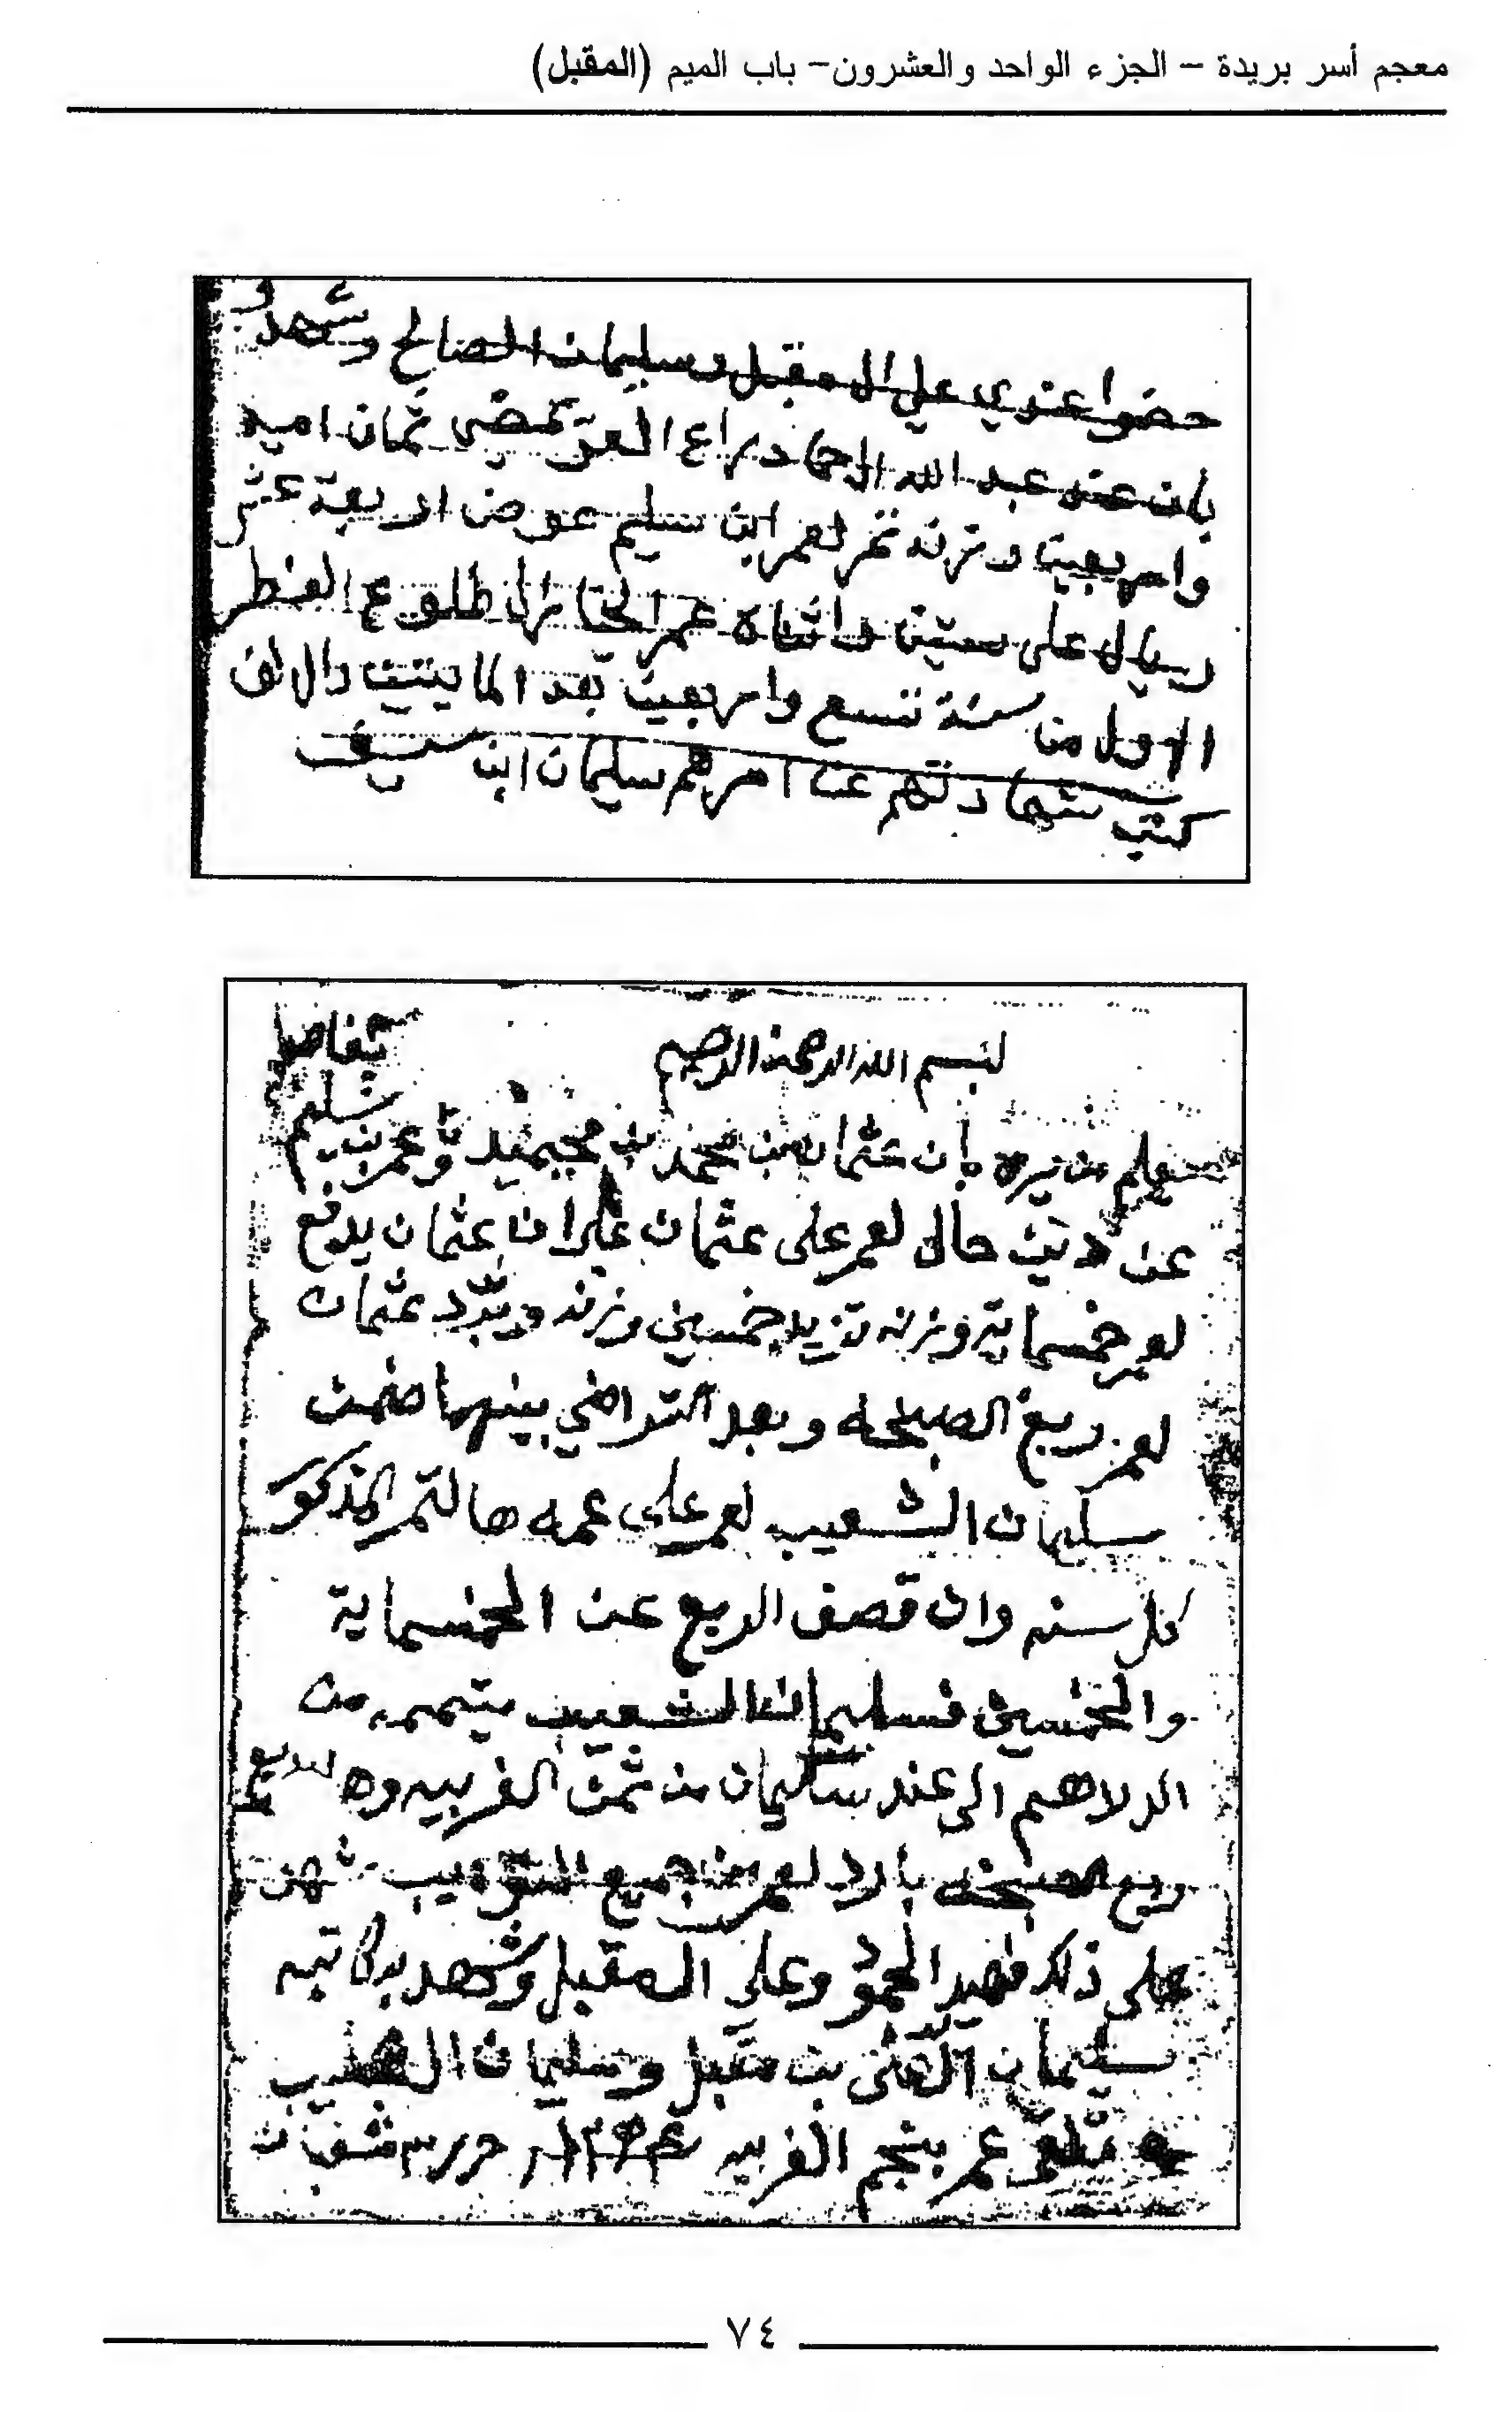 معجم أسر بريدة – الجزء الواحد والعشرون– باب الميم (المقبل)
حضروا عندي علي ال مقبل وسليمان الصالح وشهدو
بان عند عبد الله دراع ثمان امية
واربعين وزنة تمر لعمر ابن سليم عوض اربعة عشر
ريال على سنتين عمر الى طلوع الفطر
الاول من سنة تسع واربعين بعد المايتين والالف
كتب شهادتهم عن امرهم سليمان ابن سيف
بسم الله الرحمن الرحيم
يعلم من يره بان عثمان بن محمد بن وعمر بن سليم
عن دين حال لعمر على عثمان عثمان يدفع
لعمر خمسماية وزنه تزيد خمسين وزنه عثمان
لعمر ربع الصبخه وبعد التراضي بينهما ضمن
سليمان الشعيب لعمر على عمه هالتمر المذكور
كل سنه وان قصف الربع عن الخمساية
والخمسين فسليمان الشعيب يتممه من
الدراهم الي عند سليمان من ثمن الغربيه
وربع الصبخه بارد لعمر من جميع النوايب شهد
على ذلك فهيد وعلي ال مقبل وشهد به كاتبه
سليمان بن مقبل وسليمان
عمر بنجم الغربيه حرر
٧٤